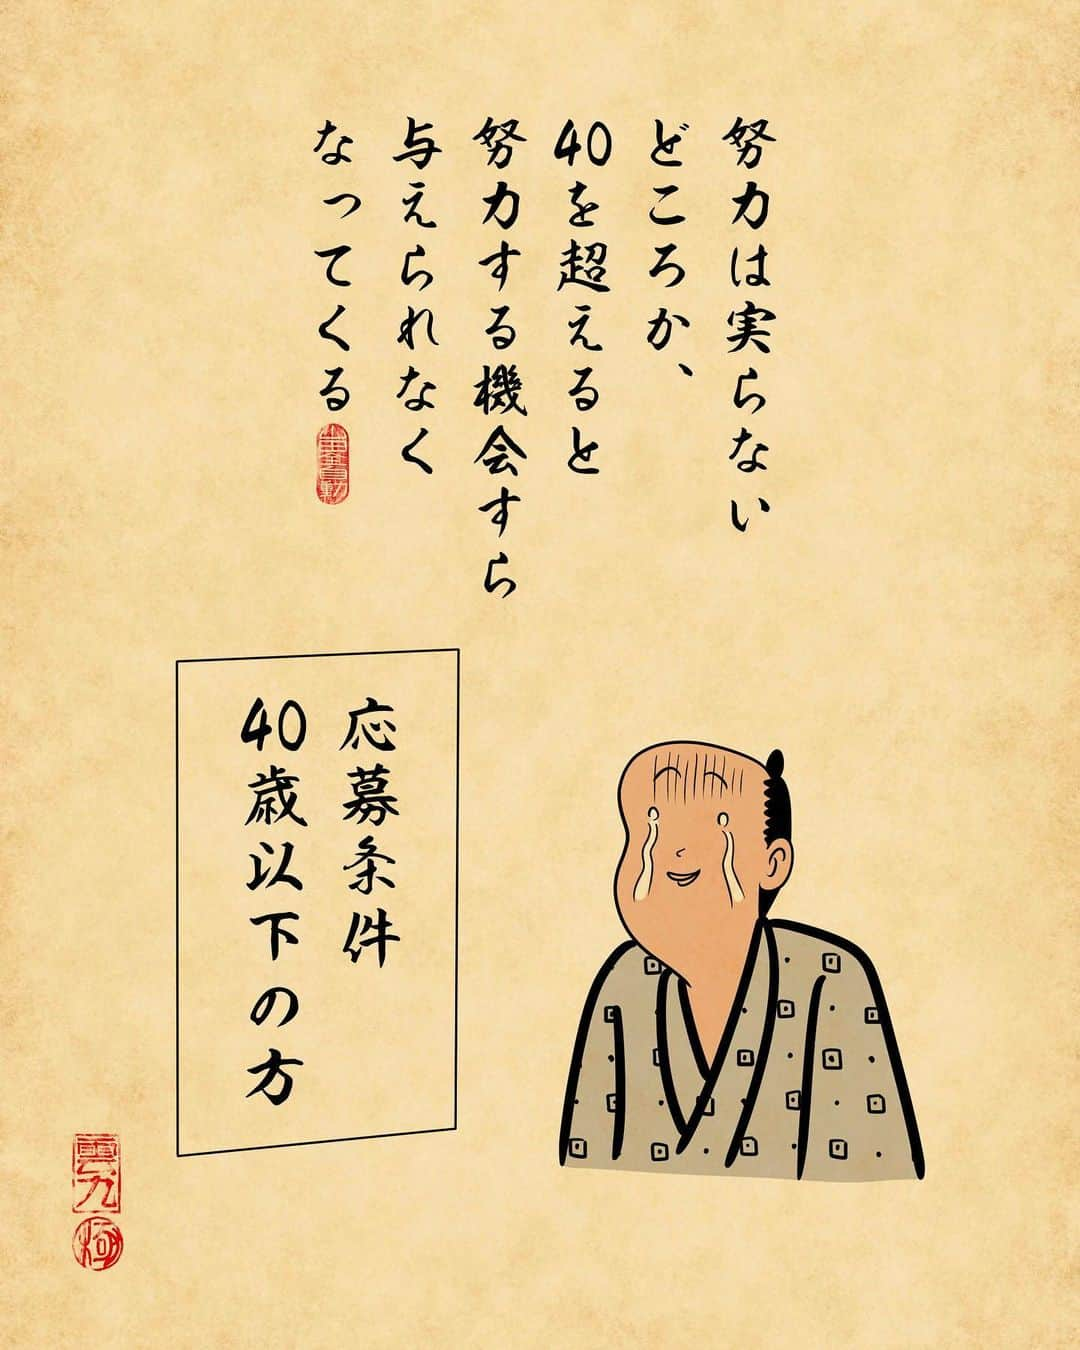 努力は実らない
どころか、
40を超えると
努力する機会すら
与えられなく
なってくる
応募条件
40歳以下の方